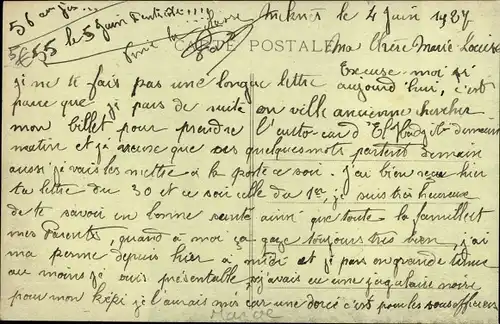 56 au jus
55 le 5 Juin
Meknès le 4 Juin 1927
CARTE POSTALE
Ma Chère Marie Louise
Excuse moi si
je ne te fais pas une longue lettre aujourd'hui, c'est
parce que je pars de suite en ville ancienne chercher
mon billet pour prendre l'auto-car d'El Hadjeb demain
matin et je veux que ces quelques mots partent demain
aussi je vais les mettre à la poste ce soir. j'ai bien reçu hier
ta lettre du 30 et ce soir celle du 1er, je suis très heureux
de te savoir en bonne santé ainsi que toute la famille et
mes Parents, quand à moi ça gaze toujours très bien, j'ai
ma perme depuis hier à midi et je pars en grande tenue
au moins je suis présentable, j'avais eu une jugulaire noire
pour mon képi je l'aurais mis car une dorée c'est pour les sous officiers
Maroc